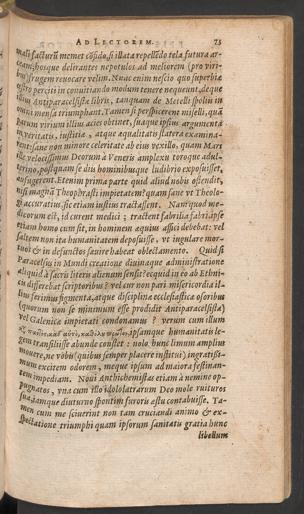 AD LECTOREM. 73
mali facturū memet cōpēdo, si illata repellēdo tela futura ar-
ceam; hosque delirantes nepotulos ad meliorem (pro viri-
frugem revocare velim. Nunc enim nescio quo superbiæ
œstro perciti in convitiando modum tenere nequeunt, deque
illius Antiparacelsistæ libris, tanquam de Metelli spoliu in
mensa triumphant. Tamen si perspicerent miselli, quā
harum virium illius acies obtinet, suaque ipsius argumenta
veritatis, iustitiæ, atque æqualitatis statera examina-
rent: sane non minore celeritate ab eius vexillo, quam Mars
ille velocissimus Deorum à Veneris amplexu toroque adul-
terino, postquam se diis hominibusque ludibrio exposuisset,
aufugerent. Etenim prima parte quid aliud nobis ostendit,
nisi magnā Theophrasti impietatem? quam sane vt Theolo-
accuratius, sic etiam iustius tractassent. Nam quod me-
dicorum est, id curent medici; tractent fabrilia fabri: ipse
etiam homo cum sit, in hominem æquius affici debebat: vel
saltem non ita humanitatem deposuisse, vt iugulare mor-
tuos & in defunctos sævire habeat oblectamento. Quid si
Paracelsus in Mundi creatione divinaque administratione
aliquid à sacris literis alienum sensit? ecquid in eo ab Ethni-
cis differebat scriptoribus? vel cur non pari misericordia il-
lius ferimus figmenta, atque disciplinæ ecclesiasticæ osoribus
(quorum non se minimum esse prodidit Antiparacelsista)
vel Galenicæ impietati condonamus? verum cum illum
ipsamque humanitatis le-
gem transiliisse abunde constet: nolo hunc limum amplius
movere, ne vobis (quibus semper placere institui) ingratissi-
mum excitem odorem, meque ipsum ad maiora festinan-
tem impediam. Novi Antichemistas etiam à nemine op-
pugnatos, vna cum illo idololatrarum Deo mole ruituros
sua, tamque diuturno spontim furoris æstu contabuisse. Ta-
men cum me sciverint non tam cruciandi animo & ex-
spectatione triumphi quam ipsorum sanitatis gratia hunc
libellum